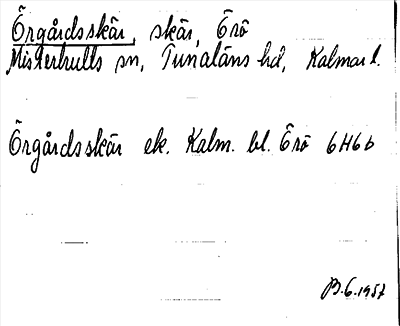 Örgårdsskär, skär, Örö
Misterhults sn, Tunaläns hd, Kalmar l.
Örgårdsskär ek. Kalm. bl. Örö 6H6b
B.G. 1957